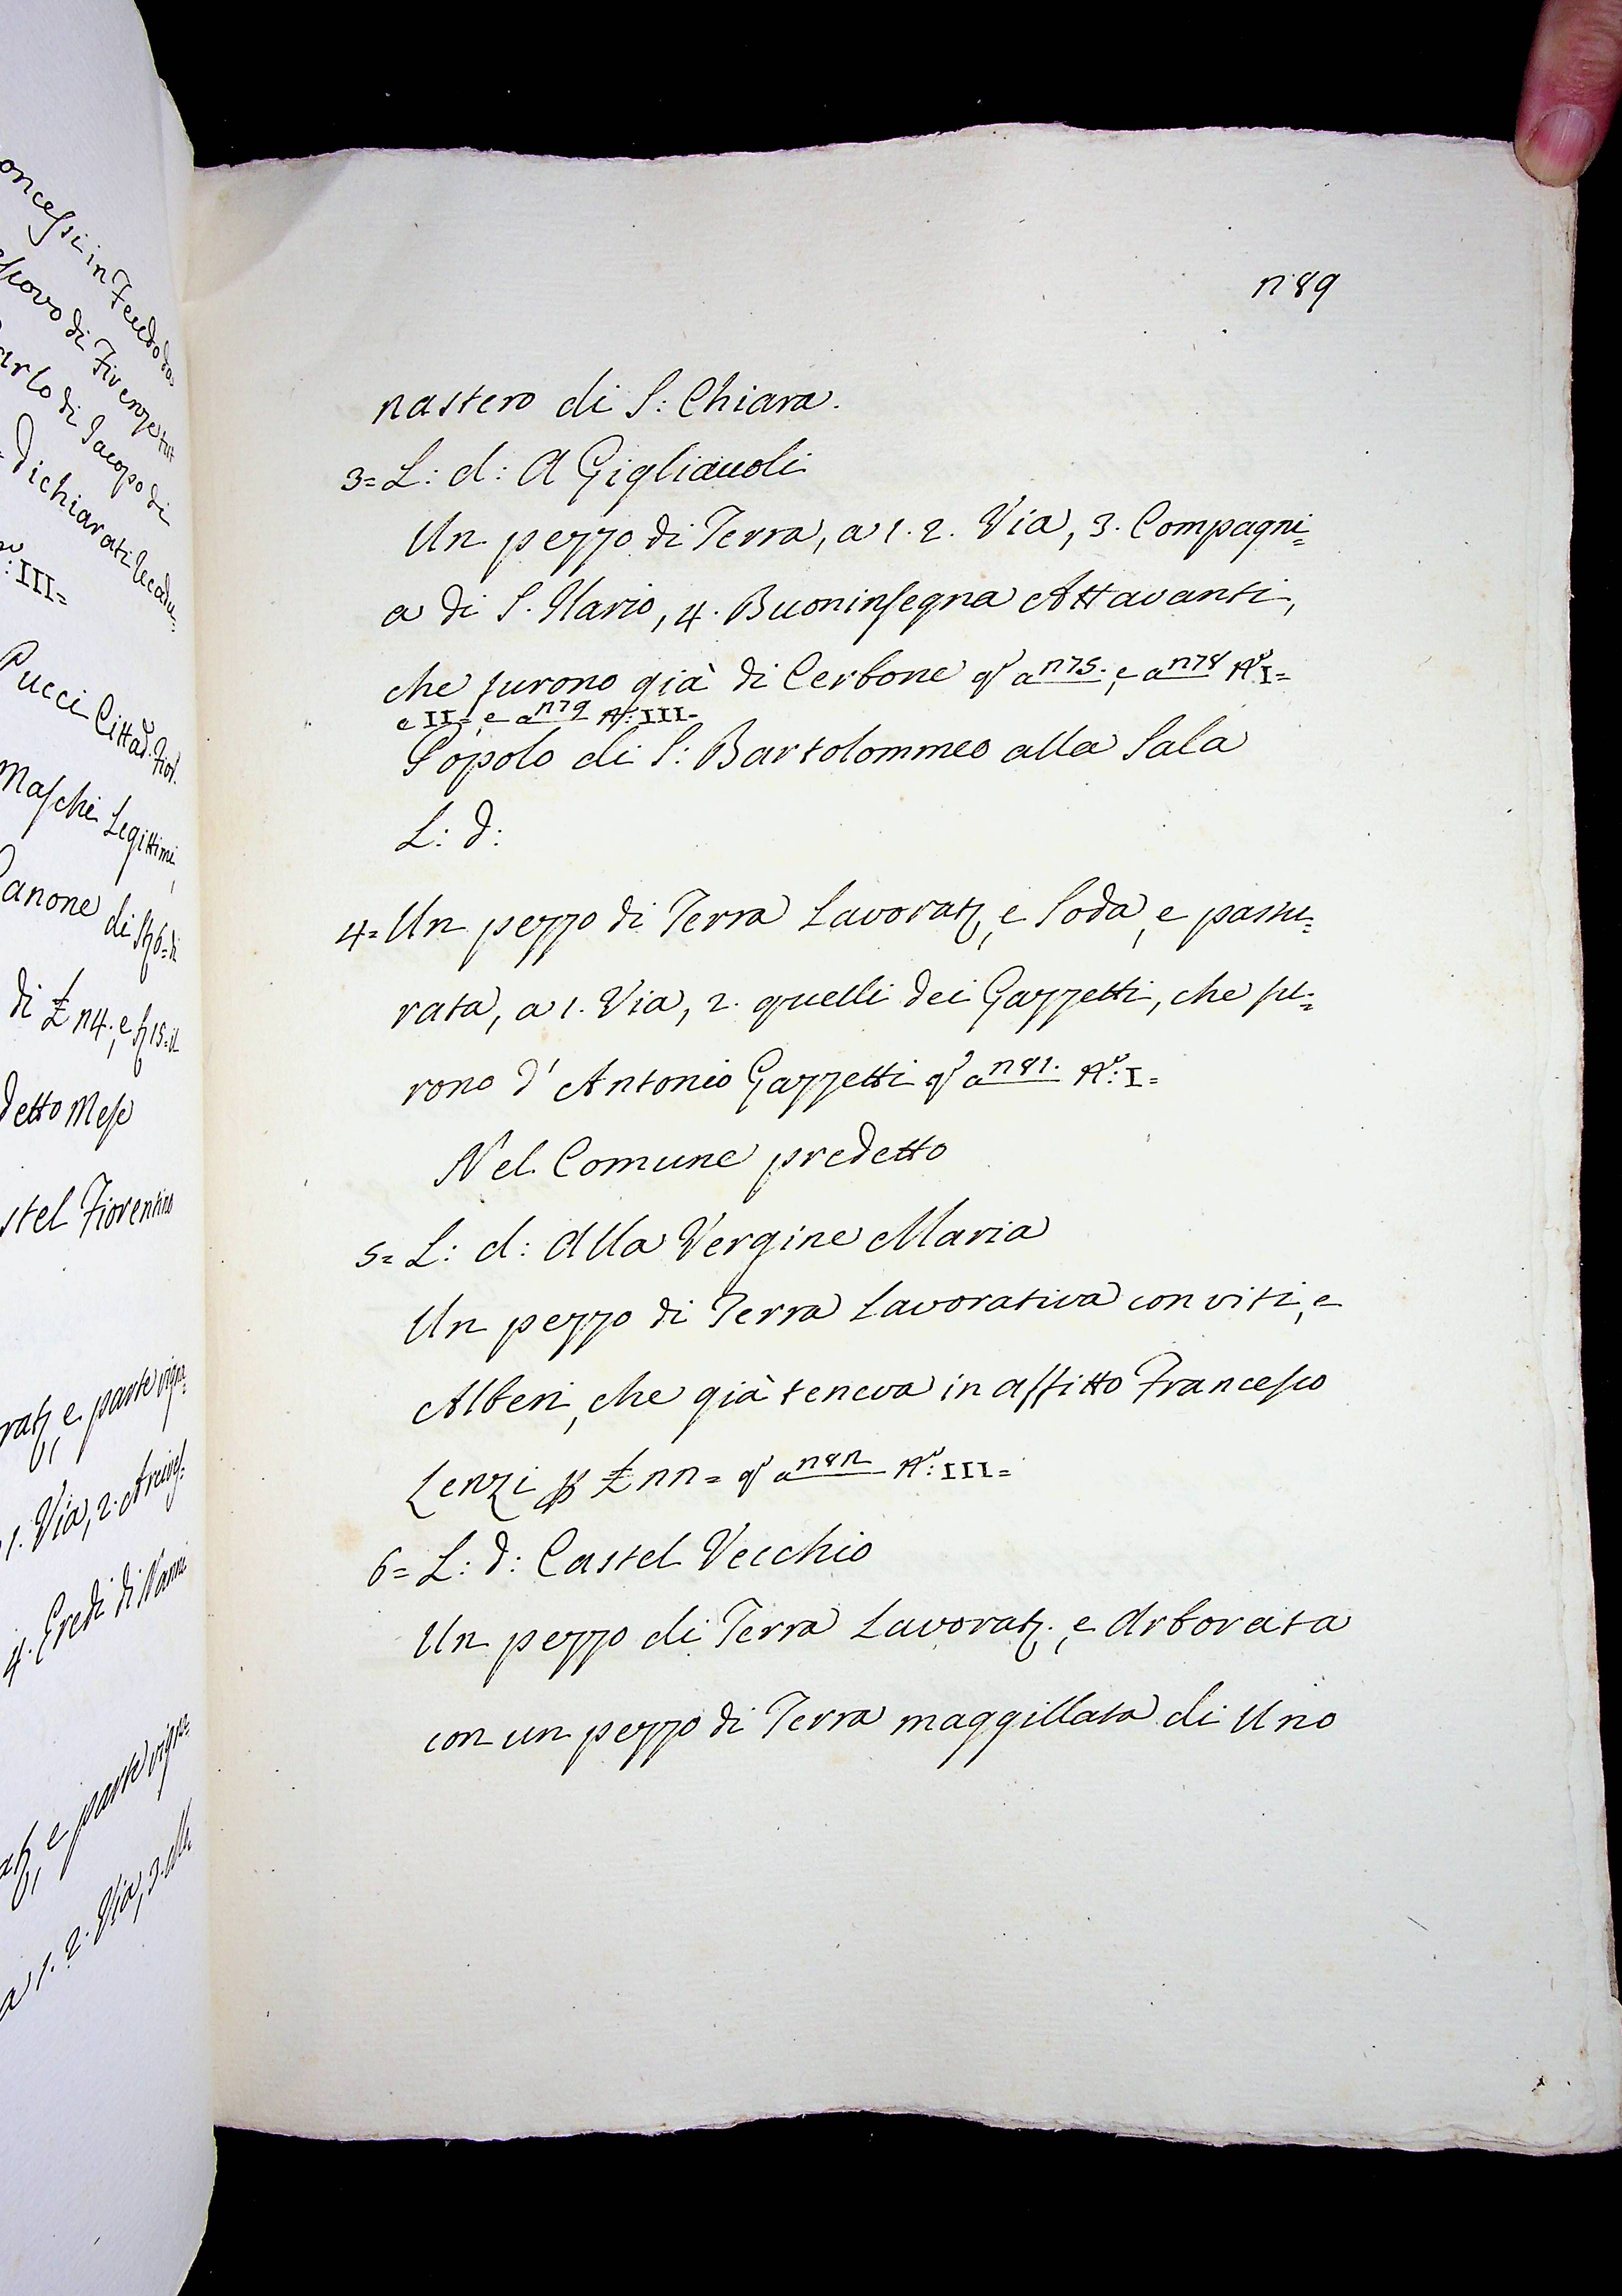 oncessi in Feudo da
escovo di Firenze tut
arlo di Jacopo di
= dichiarati Ucadu=
: III=
Pucci Cittad: Fior:
Maschi Legittimi,
Canone di 6= di
di £ n4., e 15= il
detto Mese
stel Fiorentino
rat, e parte vigna=
1. Via, 2. Arcives=
4. Eredi di Nanni
at, e parte vigna=
a 1. 2. Via, 3. alle
n89
nastero di S: Chiara.
3= L: d: A Gigliauoli
Un pezzo di Terra, a 1. 2. Via, 3. Compagni=
a di S. Ilario, 4. Buoninsegna Attavanti,
che furono già di Cerbone qº a n75., e a n78 Nº I=
e II=, e a n79 Nº: III=
Popolo di S: Bartolommeo alla Sala
L: d:
4= Un pezzo di Terra Lavorat, e Soda, e pastu=
rata, a 1. Via, 2. quelli dei Gazzetti, che fu=
rono d' Antonio Gazzetti qº a n81. Nº: I=
Nel Comune predetto
5= L: d: Alla Vergine Maria
Un pezzo di Terra Lavorativa con viti, e
Alberi, che già teneva in affitto Francesco
Lenzi p £ nn= qº a n8n Nº: III=
6= L: d: Castel Vecchio
Un pezzo di Terra Lavorat., e Arborata
con un pezzo di Terra maggillata di Uno